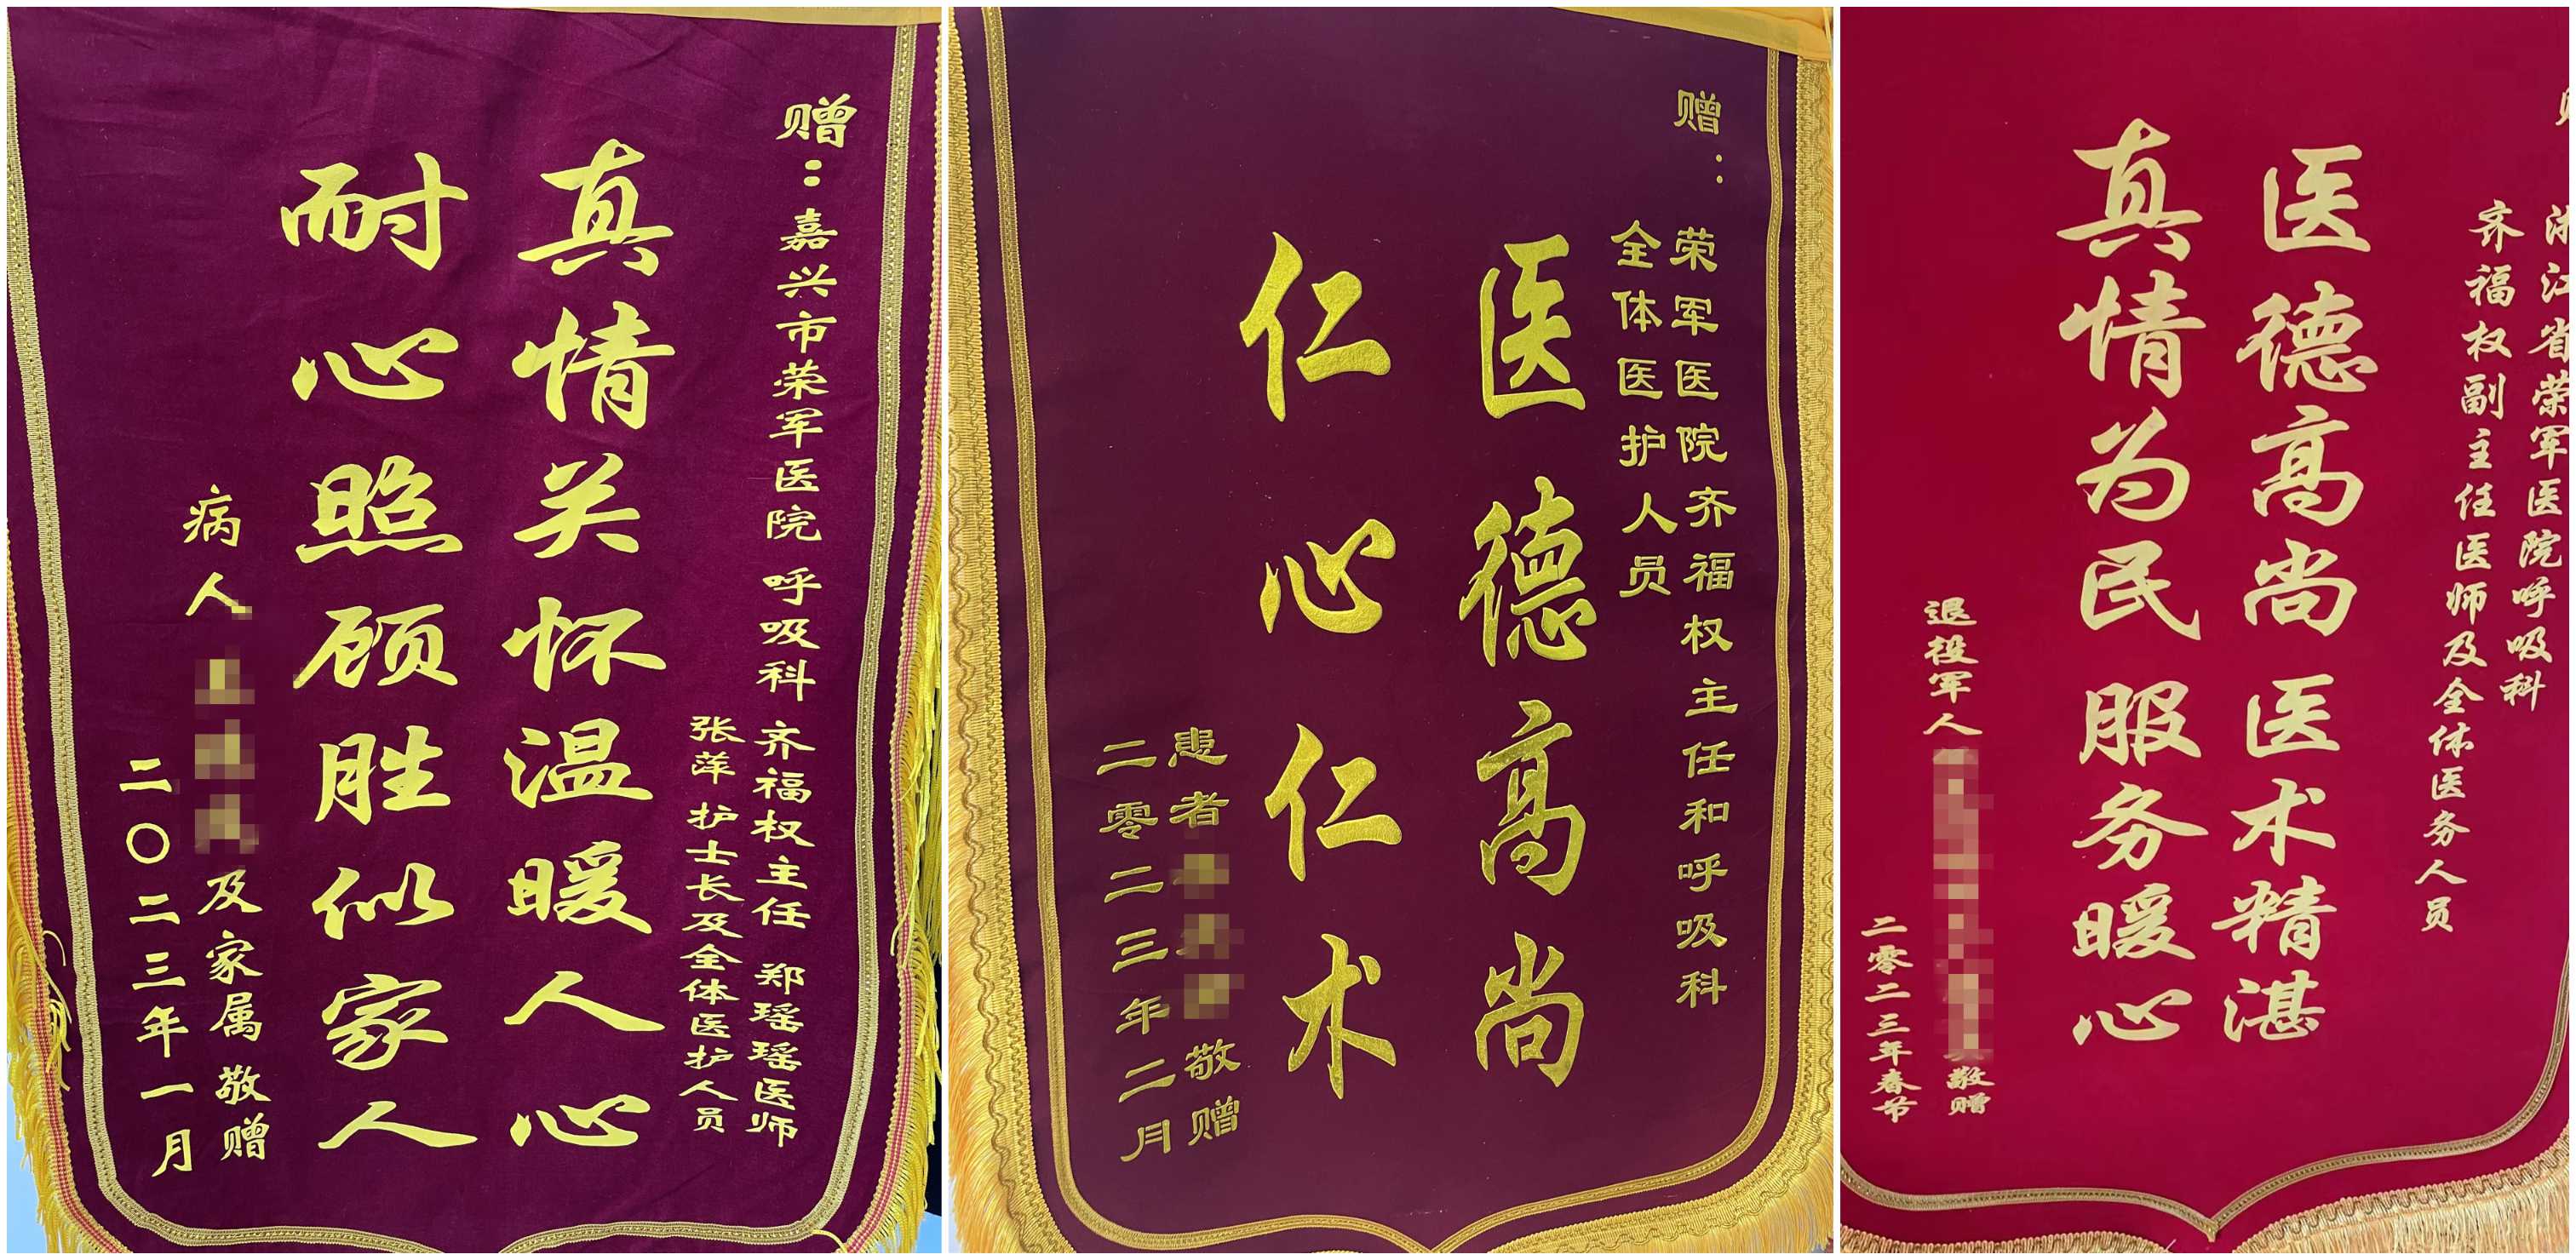 赠：嘉兴市荣军医院 呼吸科 齐福权主任 郑瑶瑶医师
张萍护士长及全体医护人员
真情关怀温暖人心
耐心照顾胜似家人
病人
及家属敬赠
二〇二三年一月
赠：荣军医院齐福权主任和呼吸科
全体医护人员
医德高尚
仁心仁术
患者
敬赠
二零二三年二月
浙江省荣军医院呼吸科
齐福权副主任医师及全体医务人员
医德高尚医术精湛
真情为民服务暖心
退役军人
敬赠
二零二三年春节